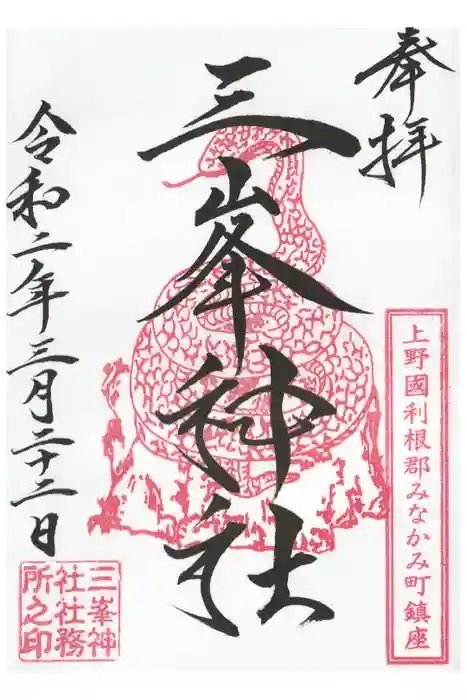 奉拝
上野國利根郡みなかみ町鎮座
三峯神社
令和二年三月二十二日
三峯神
社社務
所之印